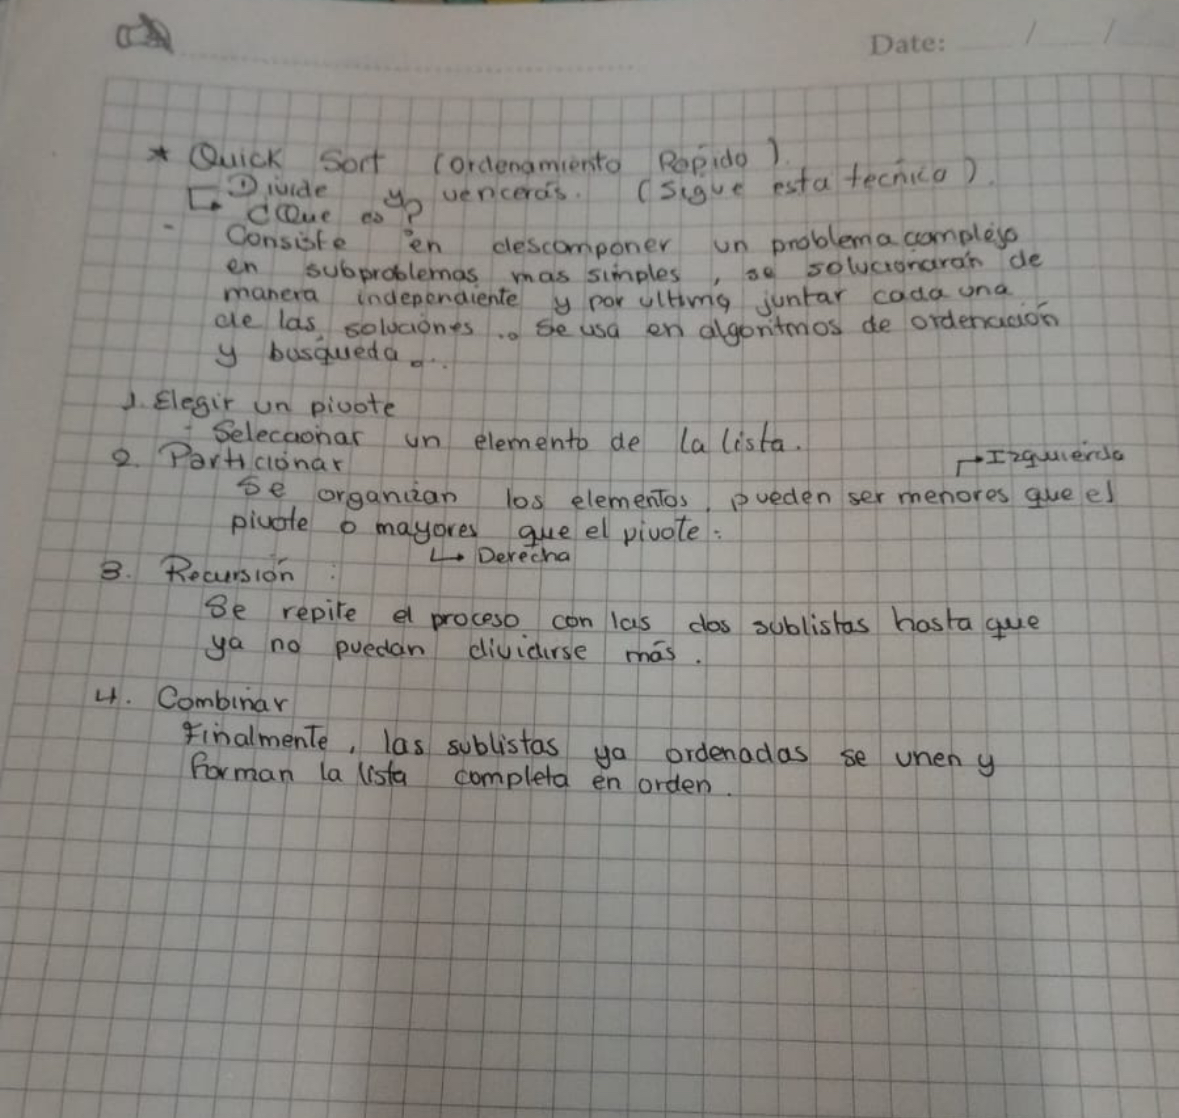 Date: / /
* Quick Sort (Ordenamiento Rapido).
Divide y vencerás. (Sigue esta tecnica).
¿Que es?
- Consiste en descomponer un problema complejo
en subproblemas mas simples, se solucionarán de
manera independiente y por ultimo juntar cada una
de las soluciones.. Se usa en algoritmos de ordenación
y busqueda.
1. Elegir un pivote
- Seleccionar un elemento de la lista.
2. Particionar
→ Izquierda
Se organizan los elementos, pueden ser menores que el
pivote o mayores que el pivote.
↳ Derecha
3. Recursión :
Se repite el proceso con las dos sublistas hasta que
ya no puedan dividirse más.
4. Combinar
Finalmente, las sublistas ya ordenadas se unen y
forman la lista completa en orden.